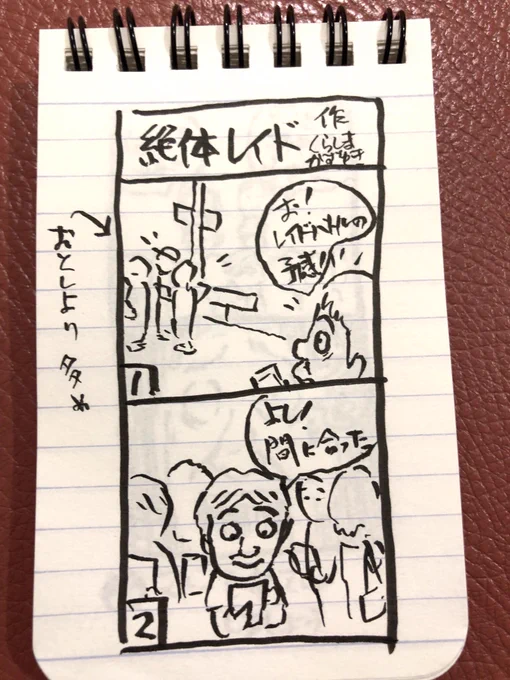 絶体レイド
作
くらしま
かずゆき
お!
レイドバトルの
予感!!
おとしより多め
1
よし!
間に合った
2